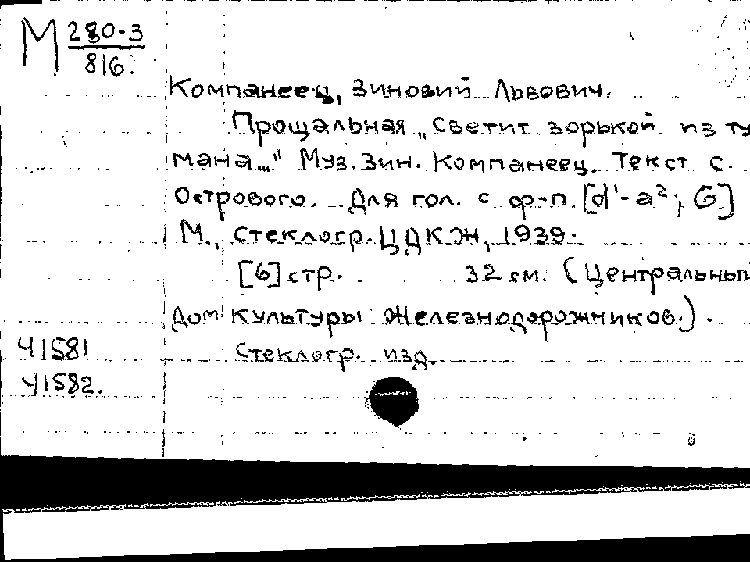 М 280-3
816.
Компанеец, Зиновий Львович.
Прощальная „Светит зорькой из ту
мана..." Муз. Зин. Компанеец. Текст С.
Острового. Для гол. с ф-п. [d¹-a²; G]
М., стеклогр. ЦДКЖ, 1939.
[6] стр. 32 см. (Центральный
Дом культуры железнодорожников.).
41581 Стеклогр. изд.
41582.